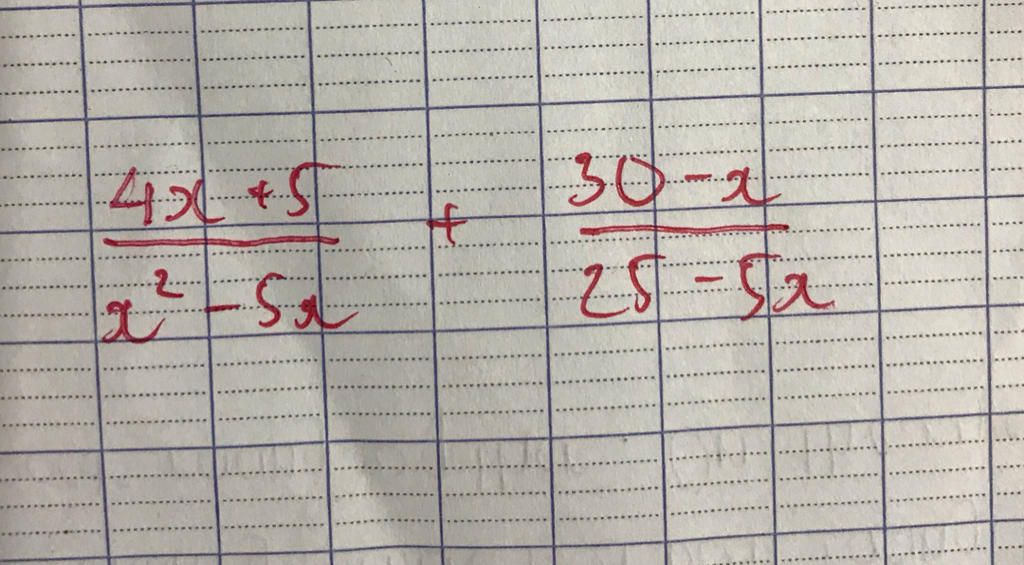 4x + 5 / x² - 5x + 30 - x / 25 - 5x